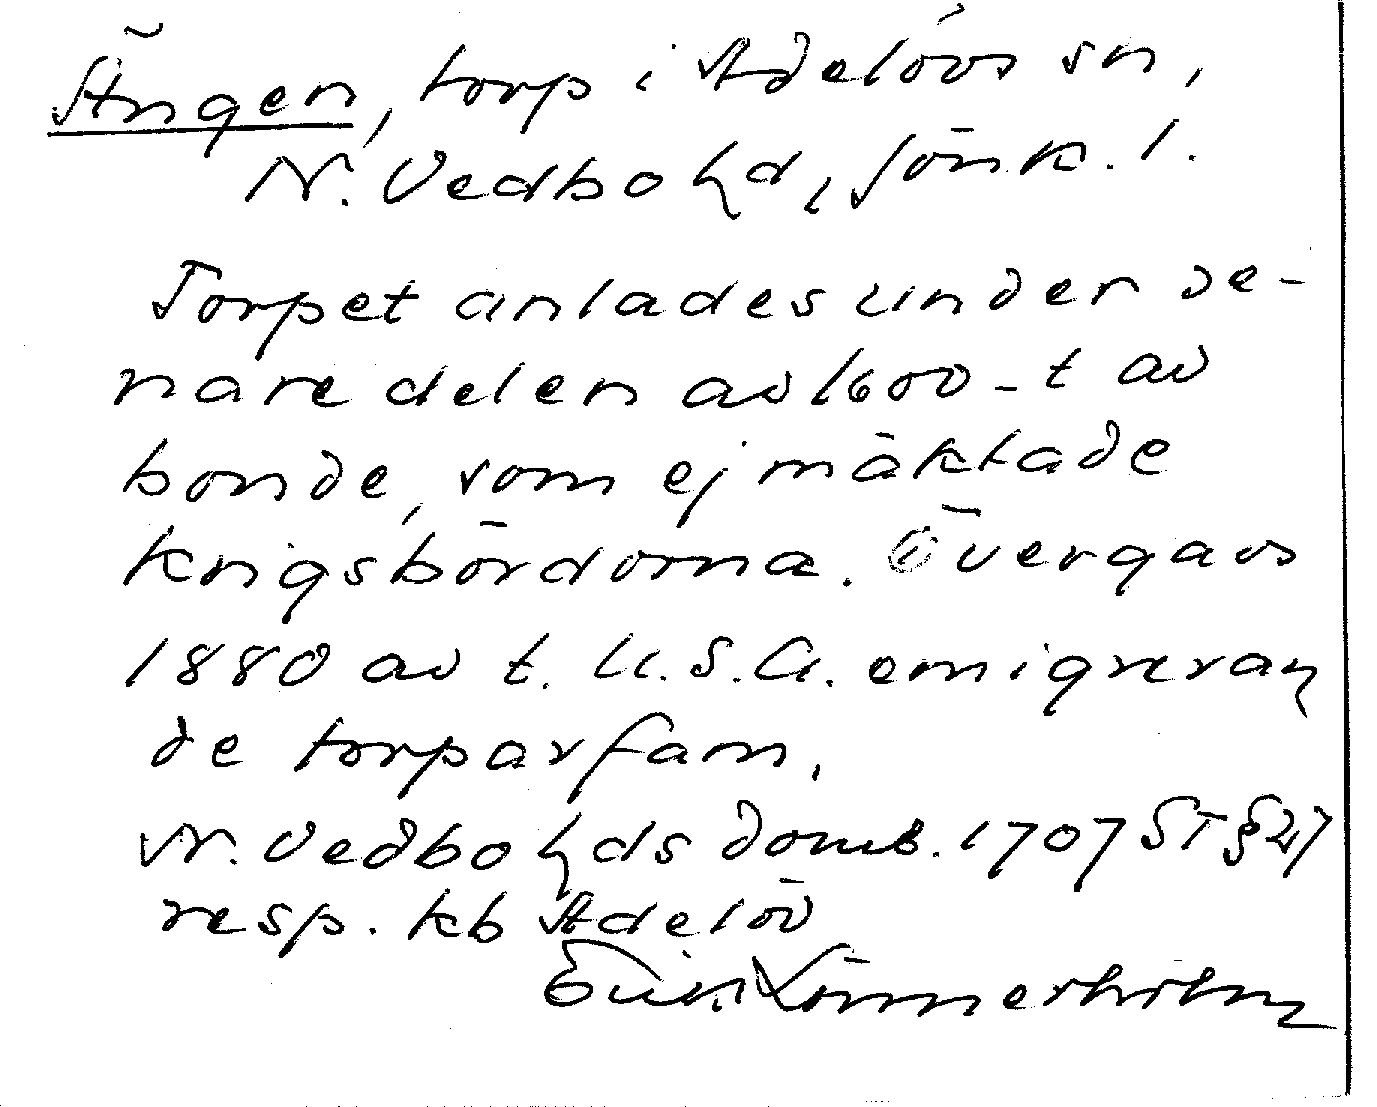 Ängen, torp i Adelövs sn,
N. Vedbo hd, Jönk. l.
Torpet anlades under se-
nare delen av 1600-t av
bonde, som ej mäktade
krigsbördorna. Övergavs
1880 av t. U.S.A. emigreran
de torparfam.
N. Vedbo hds domb. 1707 ST § 27
resp. kb Adelöv
Erik Lönnerholm